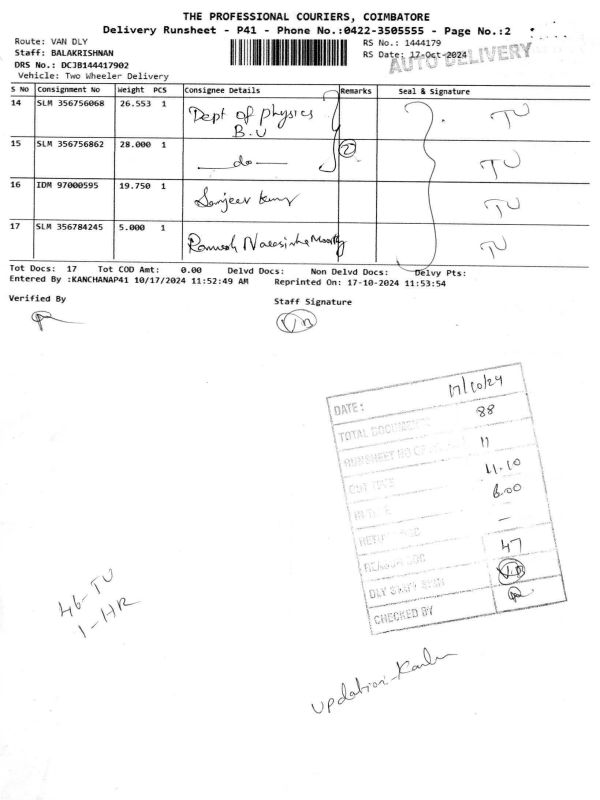 THE PROFESSIONAL COURIERS, COIMBATORE
Delivery Runsheet - P41 - Phone No.:0422-3505555 - Page No.:2
Route: VAN DLY
Staff: BALAKRISHNAN
DRS No.: DCJB144417902
Vehicle: Two Wheeler Delivery
RS No.: 1444179
RS Date: 17-Oct-2024
AUTO DELIVERY
S No Consignment No Weight PCS Consignee Details Remarks Seal & Signature
14 SLM 356756068 26.553 1 Dept of physics B.U TU
15 SLM 356756862 28.000 1 —do— 2 TU
16 IDM 97000595 19.750 1 Sanjeev Kumar TU
17 SLM 356784245 5.000 1 Ramesh Narasimha Moorthy TU
Tot Docs: 17 Tot COD Amt: 0.00 Delvd Docs: Non Delvd Docs: Delvy Pts:
Entered By :KANCHANAP41 10/17/2024 11:52:49 AM Reprinted On: 17-10-2024 11:53:54
Verified By Staff Signature
DATE: 17/10/24
TOTAL DOCUMENTS 88
RUNSHEET NO 11
OUT TIME 11.10
6.00
—
47
DLY STAFF SIGN
CHECKED BY
46-TU
1-HR
updation-